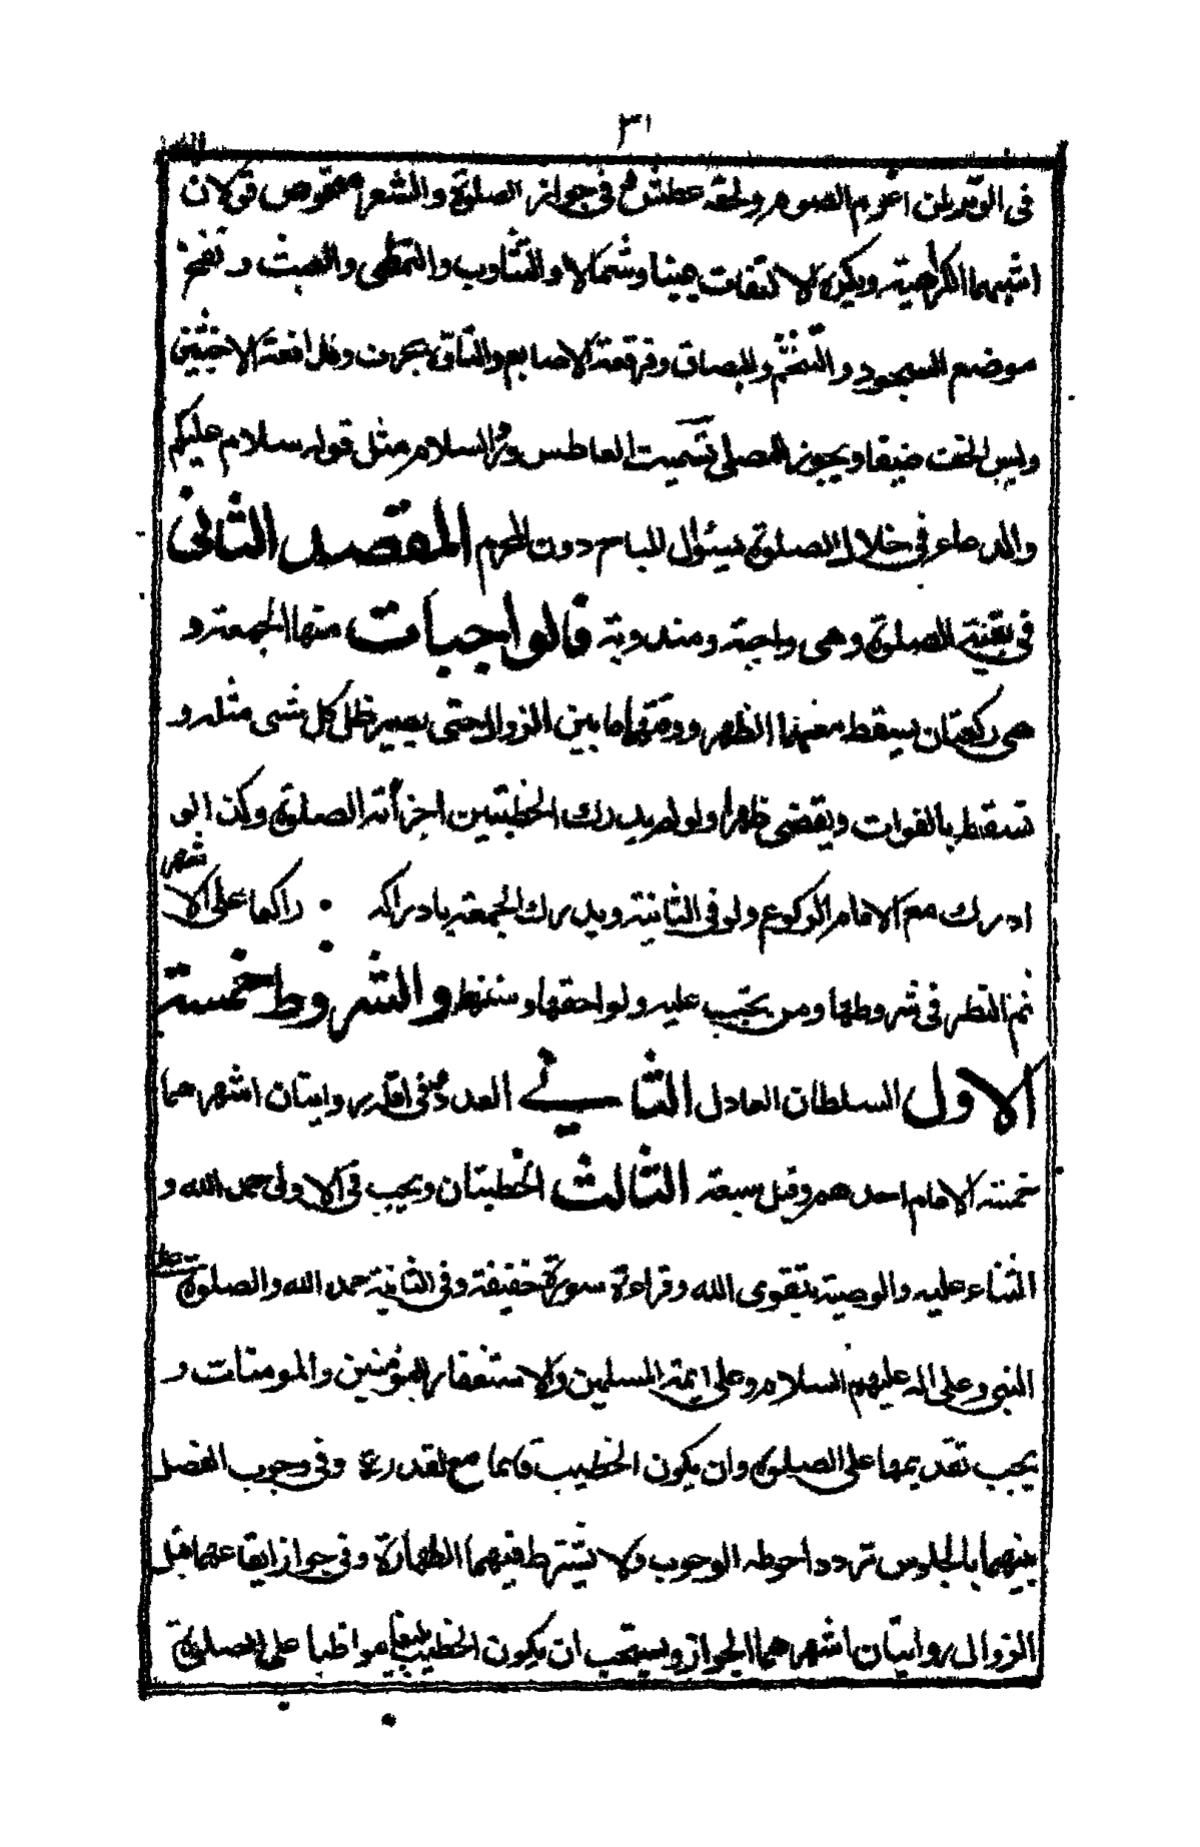 ٣١
فى الوتر لمن اعزم الصوم ولحقه عطش و فى جواز الصلوة والشعر معقوص قولان
اشبههما الكراهية ويكره الالتفات يمينا وشمالا والتثاوب والتمطى والعبث و نفخ
موضع السجود والتنخم والبصاق وفرقعة الاصابع والتاوه بحرف ومدافعة الاخبثين
ولبس الخف ضيقا ويجوز للمصلى تسميت العاطس ورد السلام مثل قوله سلام عليكم
والدعاء فى خلال الصلوة بسؤال المباح دون المحرم المقصد الثانى
فى بقية الصلوة وهى واجبة ومندوبة فالواجبات منها الجمعة و
هى ركعتان يسقط معهما الظهر ووقتها ما بين الزوال حتى يصير ظل كل شى مثله و
تسقط بالفوات ويقضى ظهرا ولو لم يدرك الخطبتين اجزأته الصلوة وكذا لو
ادرك مع الامام الركوع ولو فى الثانية ويدرك الجمعة بادراكه راكعا على الا
شهر
ثم النظر فى شروطها ومن يجب عليه ولواحقها وسننها والشروط خمسة
الاول السلطان العادل الثانى العدد وفى اقله روايتان اشهرهما
خمسة الامام احدهم وقيل سبعة الثالث الخطبتان ويجب فى الاولى حمد الله و
الثناء عليه والوصية بتقوى الله وقراءة سورة خفيفة وفى الثانية حمد الله والصلوة على
النبى وعلى اله عليهم السلام وعلى ايمة المسلمين والاستغفار للمؤمنين والمومنات و
يجب تقديمها على الصلوة وان يكون الخطيب قائما مع لقدرة وفى وجوب الفصل
بينهما بالجلوس تردد احوطه الوجوب ولا يشترط فيهما الطهارة وفى جواز ايقاعهما قبل
الزوال روايتان اشهرهما الجواز ويستحب ان يكون الخطيب بليغا مواظبا على الصلوة